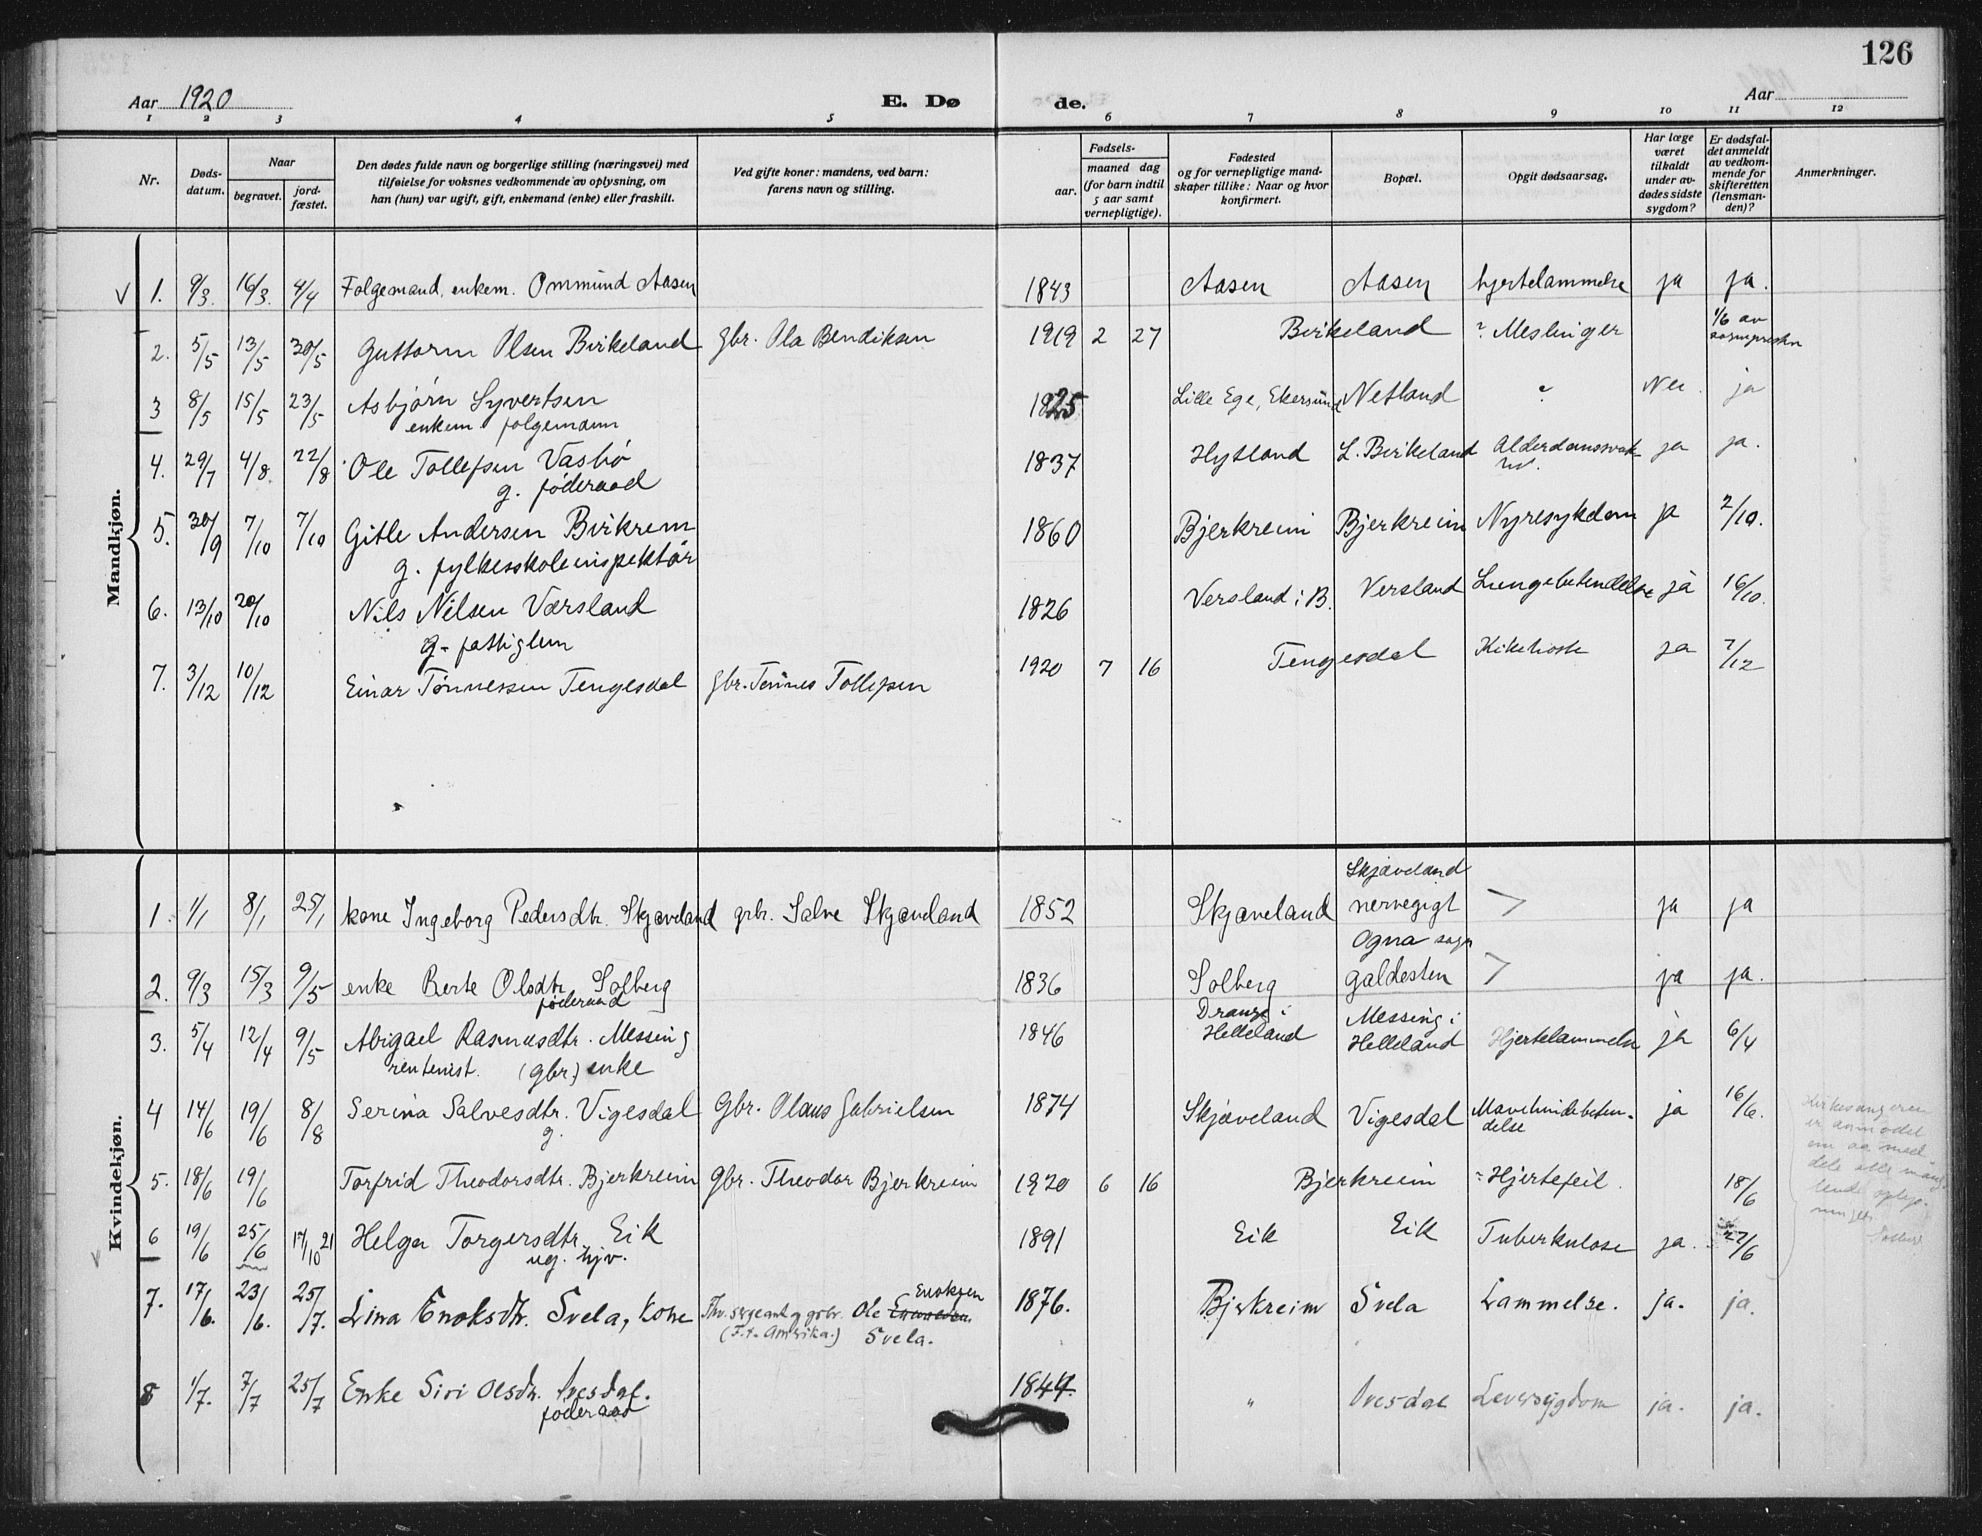 126
Aar 1920 E. Dø de. Aar
1 2 3 4 5 6 7 8 9 10 11 12
Nr.
Døds-
datum.
Naar
begravet.
jord-
fæstet.
Den dødes fulde navn og borgerlige stilling (næringsvei) med
tilføielse for voksnes vedkommende av oplysning, om
han (hun) var ugift, gift, enkemand (enke) eller fraskilt.
Ved gifte koner: mandens, ved barn:
farens navn og stilling.
Fødsels-
aar.
maaned dag
(for barn indtil
5 aar samt
vernepligtige).
Fødested
og for vernepligtige mand-
skaper tillike: Naar og hvor
konfirmert.
Bopæl.
Opgit dødsaarsag.
Har læge
været
tilkaldt
under av-
dødes sidste
sygdom?
Er dødsfal-
det anmeldt
av vedkom-
mende for
skifteretten
(lensman-
den)?
Anmerkninger.
Mandkjøn.
1. 9/3. 16/3. 4/4 Folgemand, enkem. Ommund Aasen 1843 Aasen Aasen hjertelammelse ja ja.
2. 5/5 13/5 30/5 Guttorm Olsen Birkeland gbr. Ola Bendiksen 1919 2 27 Birkeland ? Meslinger 1/6 av
sognepresten
3 8/5 15/5 23/5 Asbjørn Syvertsen 1825 Lille Ege, Ekersund Netland ? Nei. ja
enkem folgemann
4. 29/7 4/8. 22/8 Ole Tollefsen Vasbø 1837 Hytland L. Birkeland Alderdomssvak- ja ja.
g. føderaad
5. 30/9 7/10 7/10 Gitle Andersen Birkrem 1860 Bjerkreim Bjerkreim Nyresykdom ja 2/10.
g. fylkesskoleinspektør
6. 13/10 20/10 Nils Nilsen Værsland 1826 Versland i B. Versland Lungebetendelse ja 16/10.
g. fattiglem
7. 3/12 10/12 Einar Tønnessen Tengesdal gbr. Tønnes Tollefsen 1920 7 16 Tengesdal Kikehoste ja 7/12
Kvindekjøn.
1. 1/1 8/1 25/1 kone Ingeborg Pedersdtr. Skjæveland grbr. Salve Skjæveland 1852 Skjæveland Skjæveland
nervegigt ja ja
Ogna sogn
2. 9/3 15/3 9/5 enke Berte Olsdtr. Solberg 1836 Solberg galdesten ja ja.
føderaad
3. 5/4 12/4 9/5 Abigael Rasmusdtr. Messing 1846 Drange i
Helleland Messing i
Helleland Hjertelammelse ja 6/4
rentenist. (gbr.) enke
4 14/6 19/6 8/8 Serina Salvesdtr. Vigesdal Gbr. Olaus Gabrielsen 1874 Skjæveland Vigesdal Mavehindebeten-
delse ja 16/6.
g.
5. 18/6 19/6 Torfrid Theodorsdtr. Bjerkreim gbr. Theodor Bjerkreim 1920 6 16 Bjerkreim ? Hjertefeil. 18/6
6 19/6 25/6 17/10 21 Helga Torgersdtr. Eik 1891 Eik Eik Tuberkulose ja. 22/6
ug. hjv.
7. 17/6. 23/6. 25/7. Lina Enoksdtr. Svela, kone Fhv. sergeant og grbr. Ole Enoksen 1876. Bjerkreim Svela Lammelse. ja. ja.
(F. t. Amerika.) Svela.
8 1/7. 7/7 25/7 Enke Siri Olsdtr. Ivesdal. 1844. " Ivesdal Leversygdom ja. ja.
føderaad
Kirkesangeren
er anmodet
om aa med-
dele alle mang-
lende oplys-
ninger.